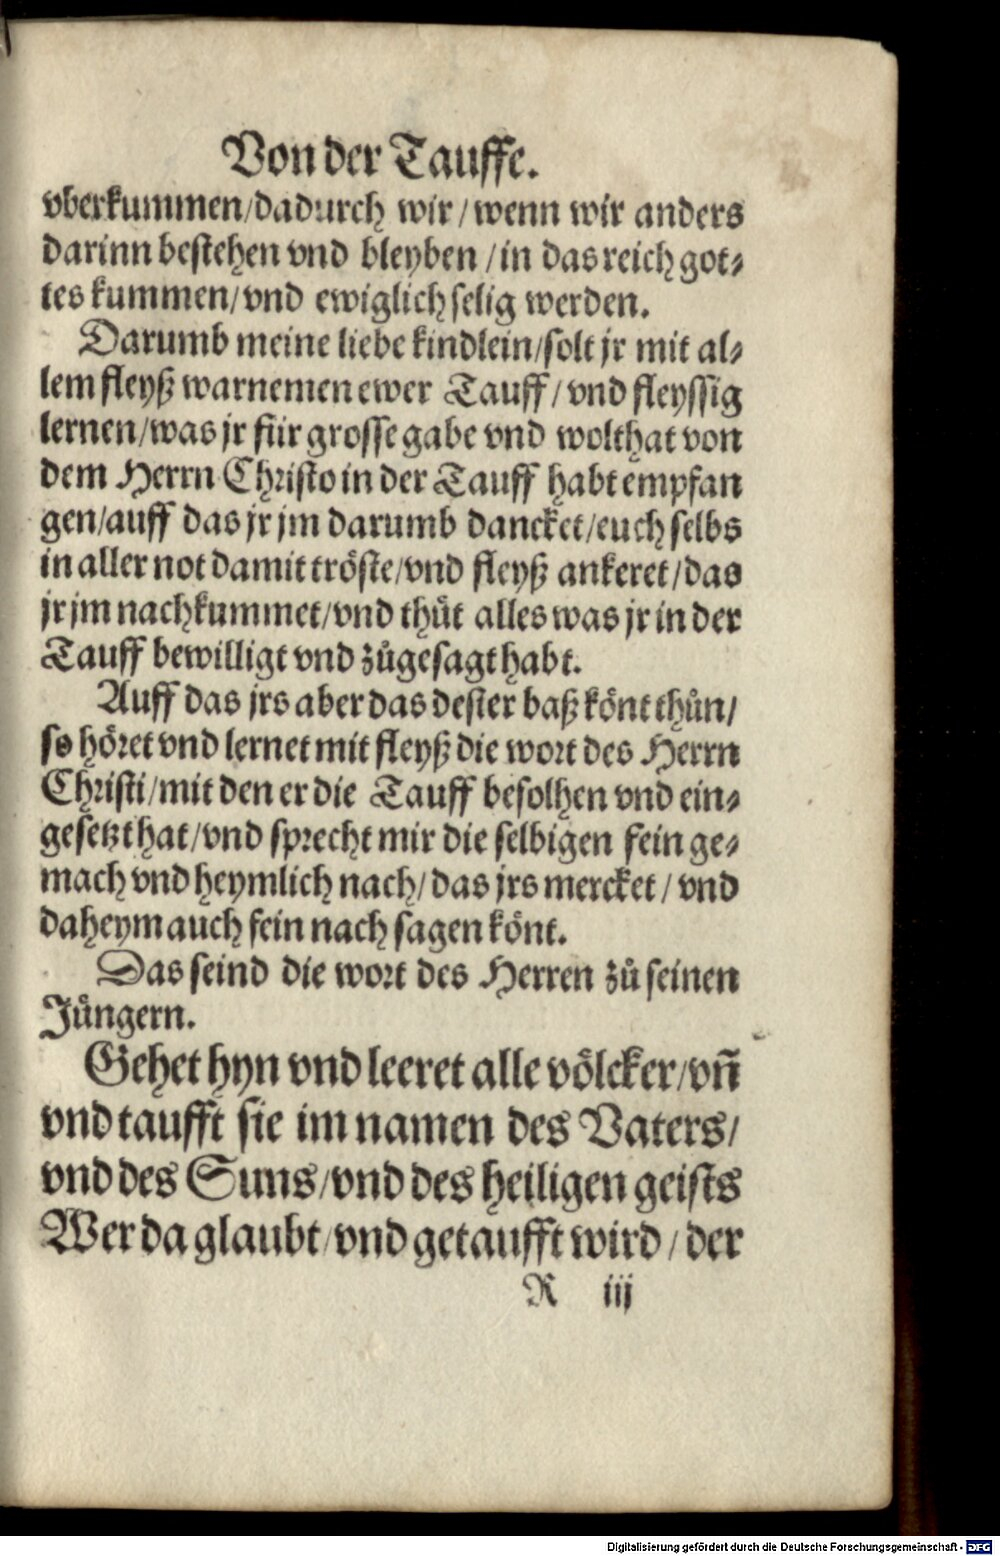 Von der Tauffe.
vberkummen/dadurch wir/wenn wir anders
darinn bestehen vnd bleyben/in das reich got⸗
tes kummen/vnd ewiglich selig werden.
Darumb meine liebe kindlein/solt jr mit al⸗
lem fleyß warnemen ewer Tauff/vnd fleyssig
lernen/was jr für grosse gabe vnd wolthat von
dem Herrn Christo in der Tauff habt empfan
gen/auff das jr jm darumb dancket/euch selbs
in aller not damit tröste/vnd fleyß ankeret/das
jr jm nachkummet/vnd thůt alles was jr in der
Tauff bewilligt vnd zůgesagt habt.
Auff das jrs aber das dester baß könt thůn/
so höret vnd lernet mit fleyß die wort des Herrn
Christi/mit den er die Tauff befolhen vnd ein⸗
gesetzt hat/vnd sprecht mir die selbigen fein ge⸗
mach vnd heymlich nach/das jrs mercket/vnd
daheym auch fein nach sagen könt.
Das seind die wort des Herren zů seinen
Jüngern.
Gehet hyn vnd leeret alle völcker/vñ
vnd taufft sie im namen des Vaters/
vnd des Suns/vnd des heiligen geists
Wer da glaubt/vnd getaufft wird/der
R iij
Digitalisierung gefördert durch die Deutsche Forschungsgemeinschaft - DFG